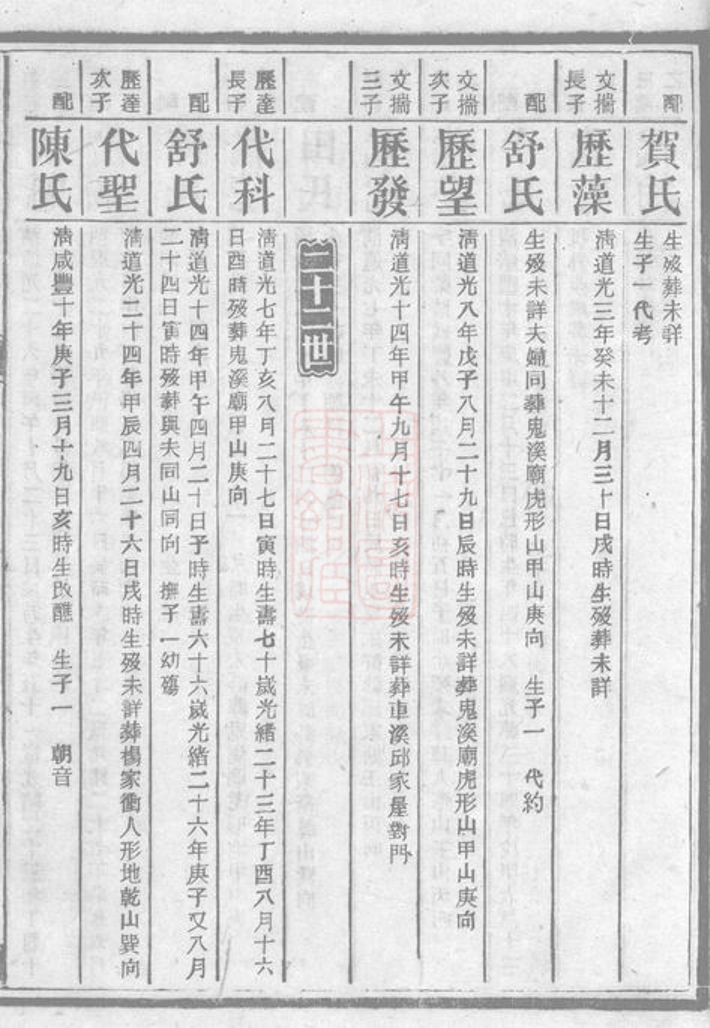 配
賀氏
生歿葬未詳
生子一代考
文揣
長子
歷藻
清道光三年癸未十二月三十日戌時生歿葬未詳
配
舒氏
生歿未詳夫婦同葬鬼溪廟虎形山甲山庚向 生子一 代約
文揣
次子
歷望
清道光八年戊子八月二十九日辰時生歿未詳葬鬼溪廟虎形山甲山庚向
文揣
三子
歷發
清道光十四年甲午九月十七日亥時生歿未詳葬車溪邱家屋對門
二十二世
歷達
長子
代科
清道光七年丁亥八月二十七日寅時生壽七十歲光緒二十三年丁酉八月十六
日酉時歿葬鬼溪廟甲山庚向
配
舒氏
清道光十四年甲午四月二十日子時生壽六十六歲光緒二十六年庚子又八月
二十四日寅時歿葬與夫同山同向 撫子一幼殤
歷達
次子
代聖
清道光二十四年甲辰四月二十六日戌時生歿未詳葬楊家衝人形地乾山巽向
配
陳氏
清咸豐十年庚子三月十九日亥時生改醮 生子一 朝音